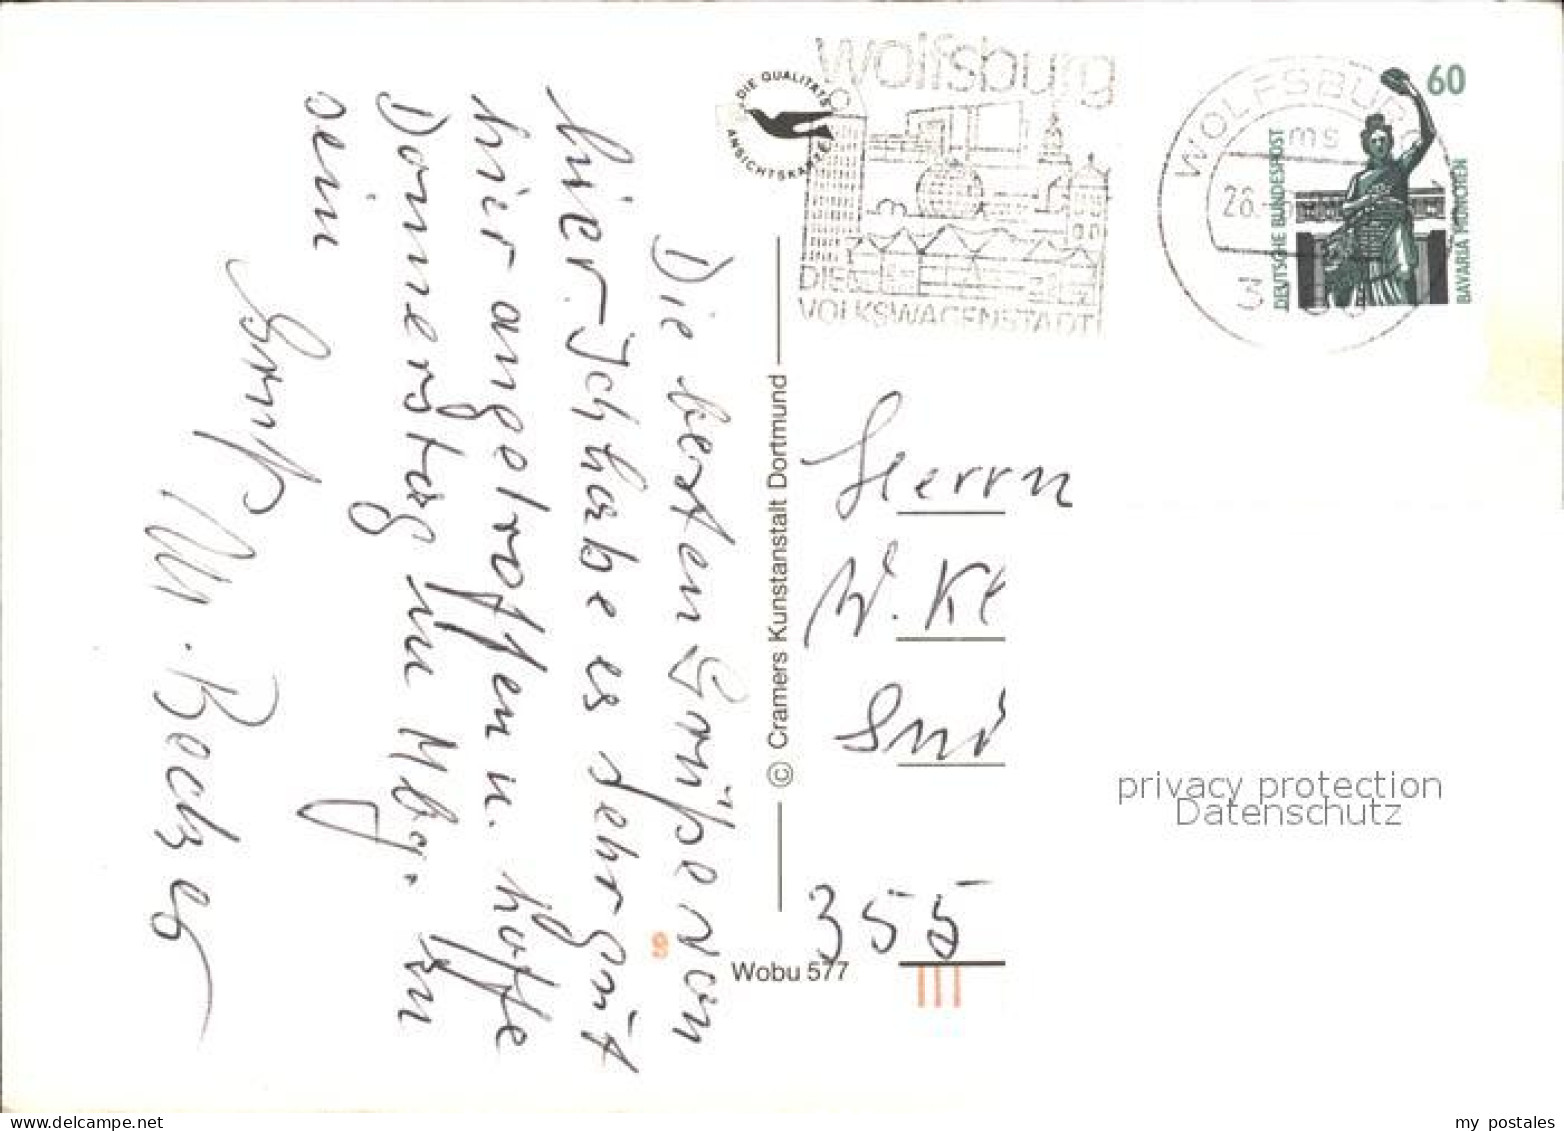 Die besten Grüße von
hier. Ich habe es sehr gut
hier angetroffen u. hoffe
Donnerstag in Mbg. zu
sein
Gruß
M.
wolfsburg
DIE
VOLKSWAGENSTADT
DIE QUALITÄTS
ANSICHTSKARTE
WOLFSBURG
ms
26.
3
60
DEUTSCHE BUNDESPOST
BAVARIA MÜNCHEN
© Cramers Kunstanstalt Dortmund
Wobu 577
Herrn
W. Ke
355
privacy protection
Datenschutz
www.delcampe.net
my_postales